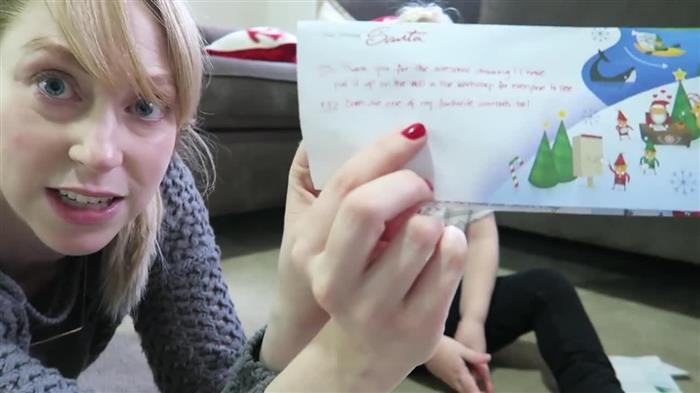 Santa
Thank you for the awesome drawing! I have
put it up on the wall in the workshop for everyone to see
one of my favourite